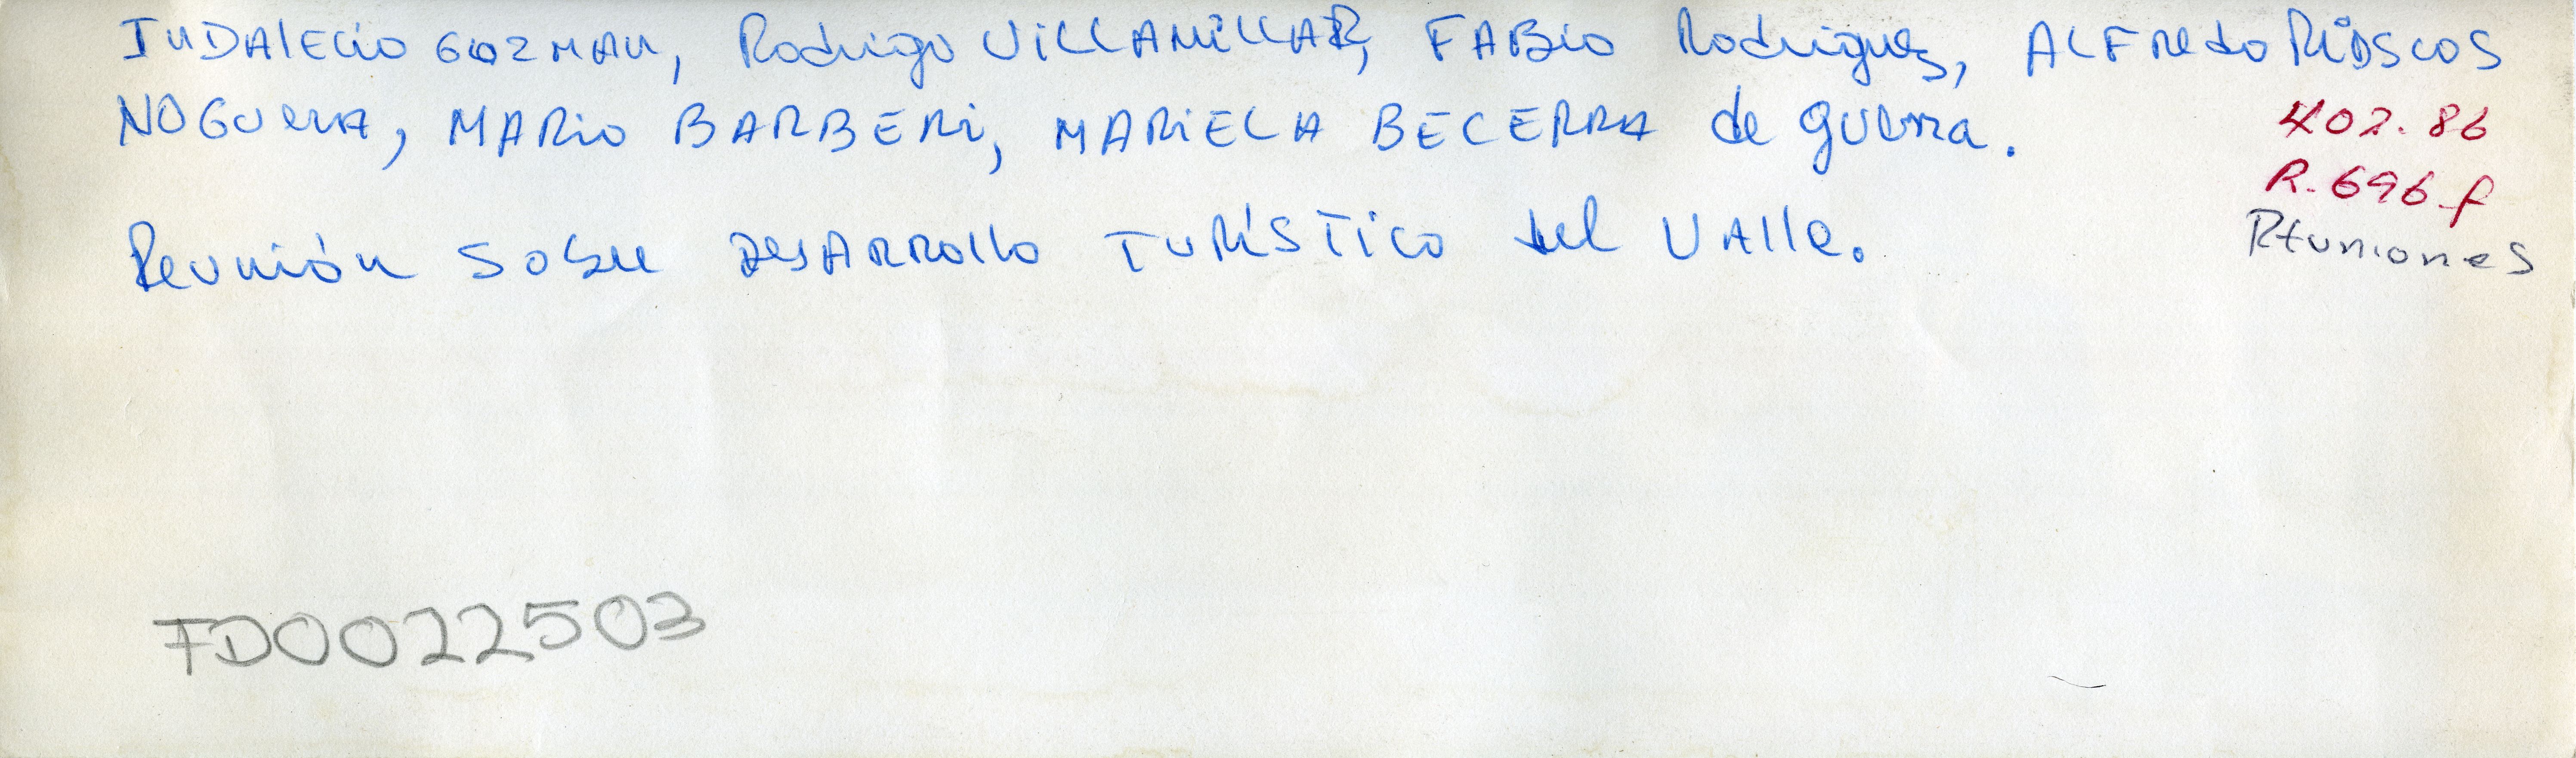 INDAlECio GOZMAN, Rodrigo ViLLAMiLLAR, FABio Rodrigues, ALFRedo RiASCOS
NOGUERA, MARio BARBERi, MARiELA BECERRA de guerra.
402.86
R.696.f
Reunión sobre DesARRollo TuRÍSTico del VAlle.
Reuniones
FD0022503